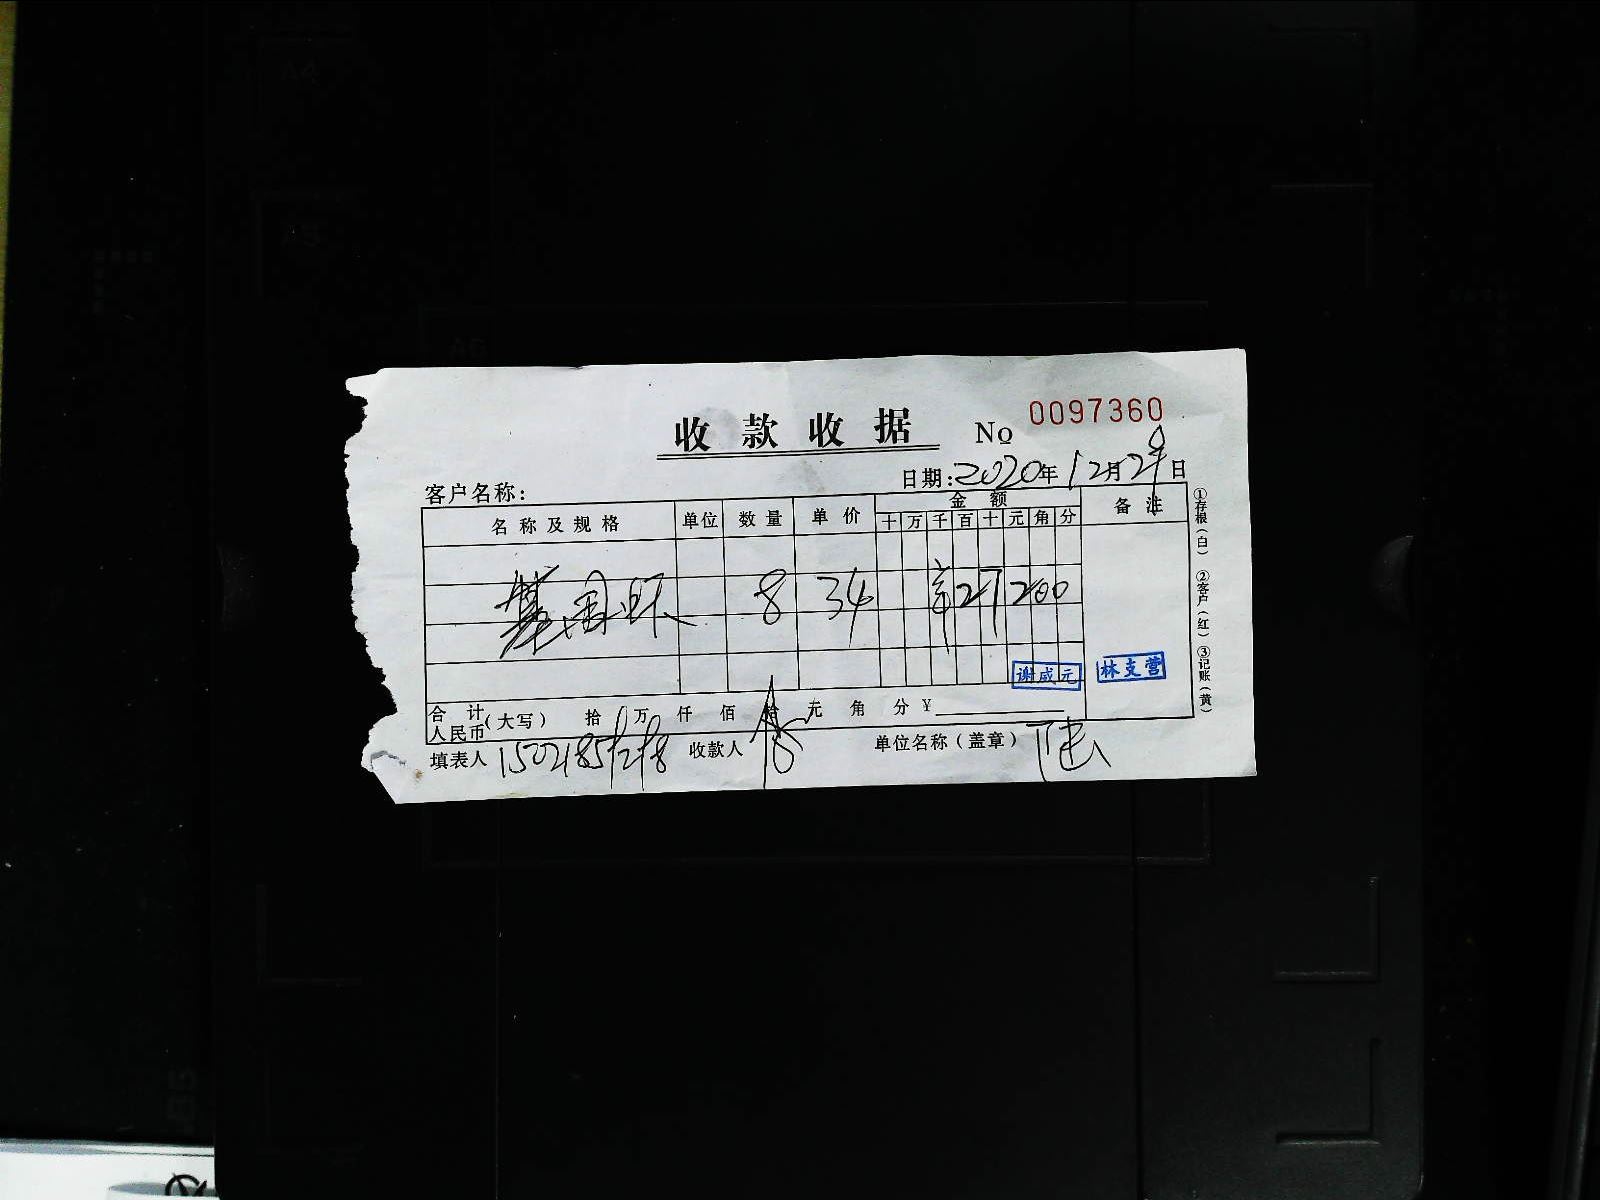 收款收据 No 0097360
日期:2020年12月29日
客户名称:
名称及规格 单位 数量 单价 金额 备注
十 万 千 百 十 元 角 分
8 34 ¥27200
谢成元 林支营
合计人民币(大写) 拾 万 仟 佰 拾 元 角 分 ¥
填表人 收款人 单位名称(盖章)
①存根(白) ②客户(红) ③记账(黄)